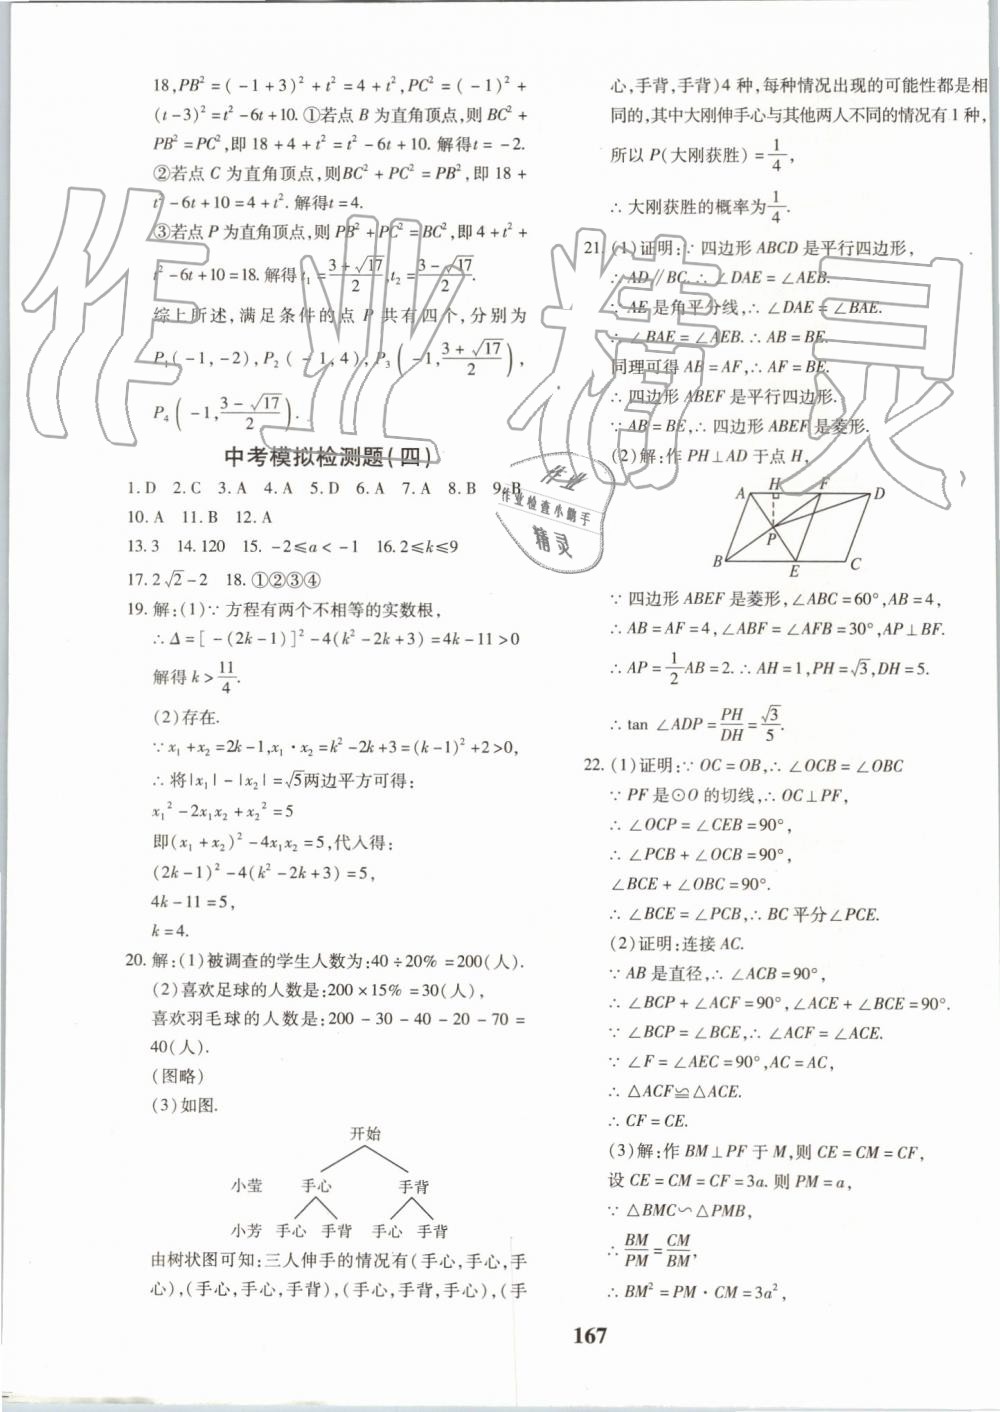 18,PB²=(-1+3)²+t²=4+t²,PC²=(-1)²+
(t-3)²=t²-6t+10.①若点B为直角顶点,则BC²+
PB²=PC²,即18+4+t²=t²-6t+10.解得t=-2.
②若点C为直角顶点,则BC²+PC²=PB²,即18+
t²-6t+10=4+t².解得t=4.
③若点P为直角顶点,则PB²+PC²=BC²,即4+t²+
t²-6t+10=18.解得t₁=(3+√17)/2,t₂=(3-√17)/2.
综上所述,满足条件的点P共有四个,分别为
P₁(-1,-2),P₂(-1,4),P₃(-1,(3+√17)/2),
P₄(-1,(3-√17)/2).
中考模拟检测题(四)
1.D 2.C 3.A 4.A 5.D 6.A 7.A 8.B 9.B
10.A 11.B 12.A
13.3 14.120 15.-2≤a<-1 16.2≤k≤9
17.2√2-2 18.①②③④
19.解:(1)∵方程有两个不相等的实数根,
∴Δ=[-(2k-1)]²-4(k²-2k+3)=4k-11>0
解得k>11/4.
(2)存在.
∵x₁+x₂=2k-1,x₁·x₂=k²-2k+3=(k-1)²+2>0,
∴将|x₁|-|x₂|=√5两边平方可得:
x₁²-2x₁x₂+x₂²=5
即(x₁+x₂)²-4x₁x₂=5,代入得:
(2k-1)²-4(k²-2k+3)=5,
4k-11=5,
k=4.
20.解:(1)被调查的学生人数为:40÷20%=200(人).
(2)喜欢足球的人数是:200×15%=30(人),
喜欢羽毛球的人数是:200-30-40-20-70=
40(人).
(图略)
(3)如图.
开始
小莹 手心 手背
小芳 手心 手背 手心 手背
由树状图可知:三人伸手的情况有(手心,手心,手
心),(手心,手心,手背),(手心,手背,手心),(手
心,手背,手背)4种,每种情况出现的可能性都是相
同的,其中大刚伸手心与其他两人不同的情况有1种,
所以P(大刚获胜)=1/4,
∴大刚获胜的概率为1/4.
21.(1)证明:∵四边形ABCD是平行四边形,
∴AD∥BC.∴∠DAE=∠AEB.
∵AE是角平分线,∴∠DAE=∠BAE.
∴∠BAE=∠AEB.∴AB=BE.
同理可得AB=AF,∴AF=BE.
∴四边形ABEF是平行四边形.
∵AB=BE,∴四边形ABEF是菱形.
(2)解:作PH⊥AD于点H,
A H F D
P
B E C
∵四边形ABEF是菱形,∠ABC=60°,AB=4,
∴AB=AF=4,∠ABF=∠AFB=30°,AP⊥BF.
∴AP=1/2AB=2.∴AH=1,PH=√3,DH=5.
∴tan∠ADP=PH/DH=√3/5.
22.(1)证明:∵OC=OB,∴∠OCB=∠OBC
∵PF是⊙O的切线,∴OC⊥PF,
∴∠OCP=∠CEB=90°,
∴∠PCB+∠OCB=90°,
∠BCE+∠OBC=90°.
∴∠BCE=∠PCB,∴BC平分∠PCE.
(2)证明:连接AC.
∵AB是直径,∴∠ACB=90°,
∴∠BCP+∠ACF=90°,∠ACE+∠BCE=90°.
∵∠BCP=∠BCE,∴∠ACF=∠ACE.
∵∠F=∠AEC=90°,AC=AC,
∴△ACF≌△ACE.
∴CF=CE.
(3)解:作BM⊥PF于M,则CE=CM=CF,
设CE=CM=CF=3a.则PM=a,
∵△BMC∽△PMB,
∴BM/PM=CM/BM,
∴BM²=PM·CM=3a²,
167
作业精灵
作业检查小助手
精灵